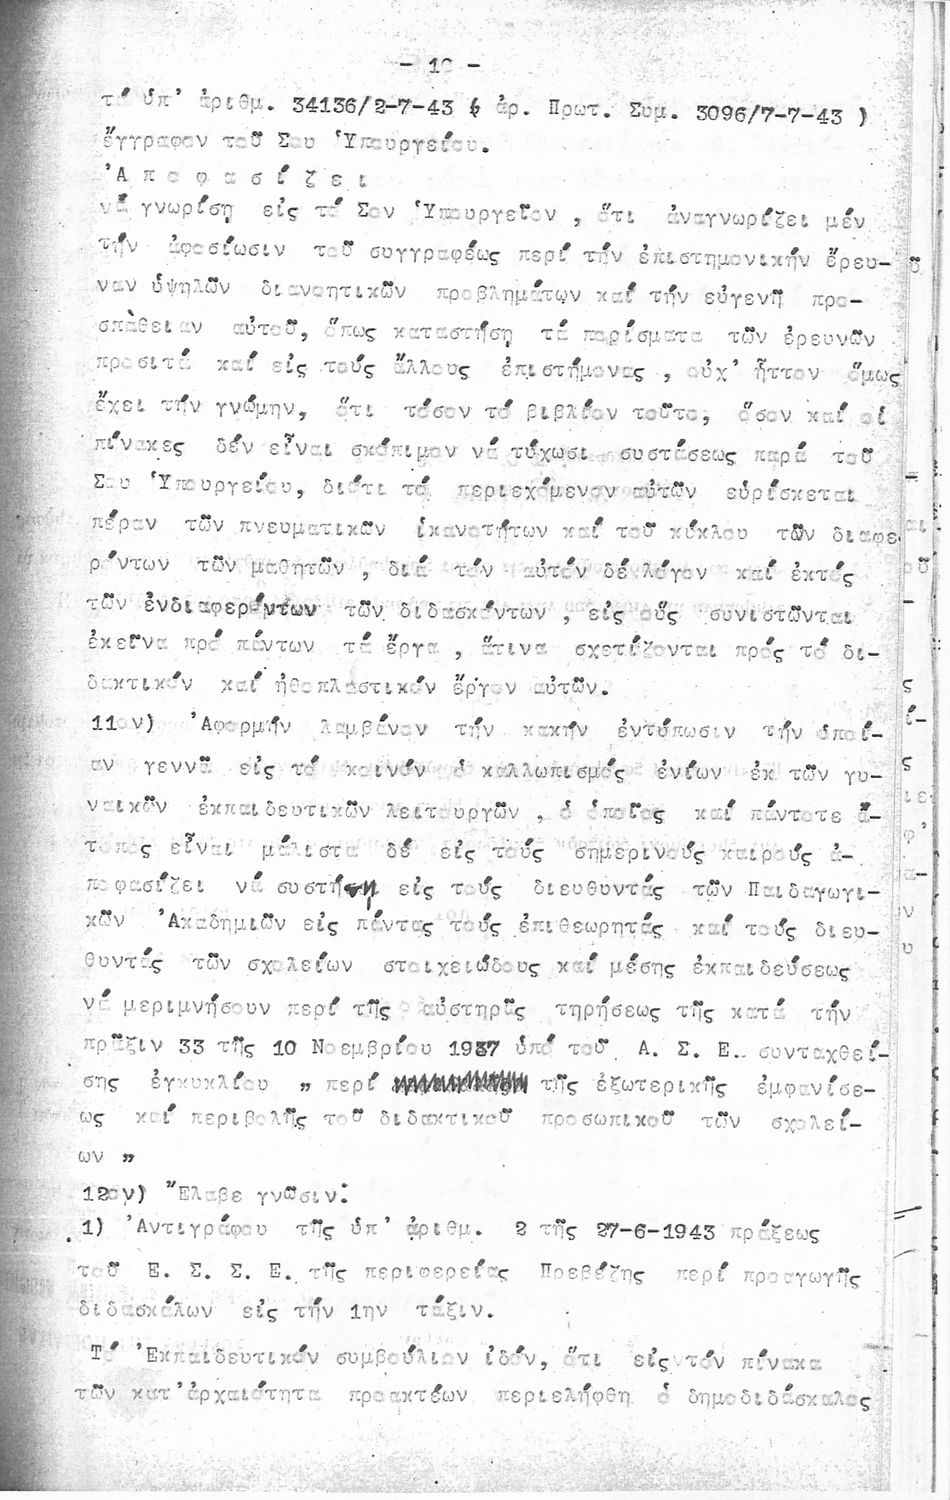 - 10 -
τά ὑπ' ἀριθμ. 34136/2-7-43 ( ἀρ. Πρωτ. Συμ. 3096/7-7-43 )
ἔγγραφον τοῦ Σου Ὑπουργείου.
Ἀ π ο φ α σ ί ζ ε ι
νά γνωρίσῃ εἰς τό Σον Ὑπουργεῖον , ὅτι ἀναγνωρίζει μέν
τήν ἀφοσίωσιν τοῦ συγγραφέως περί τήν ἐπιστημονικήν ἔρευ-
ναν ὑψηλῶν διανοητικῶν προβλημάτων καί τήν εὐγενῆ προ-
σπὰθειαν αὐτοῦ, ὅπως καταστήσῃ τά πορίσματα τῶν ἐρευνῶν
προσιτά καί εἰς τούς ἄλλους ἐπιστήμονας , οὐχ' ἧττον ὅμως
ἔχει τήν γνώμην, ὅτι τόσον τό βιβλίον τοῦτο, ὅσον καί οἱ
πίνακες δέν εἶναι σκόπιμον νά τύχωσι συστάσεως παρά τοῦ
Σου Ὑπουργείου, διότι τό περιεχόμενον αὐτῶν εὑρίσκεται
πέραν τῶν πνευματικῶν ἱκανοτήτων καί τοῦ κύκλου τῶν διαφε
ρόντων τῶν μαθητῶν , διά τόν αὐτόν δέ λόγον καί ἐκτός
τῶν ἐνδιαφερόντων τῶν διδασκόντων , εἰς οὕς συνιστῶνται
ἐκεῖνα πρό πάντων τά ἔργα , ἅτινα σχετίζονται πρός τό δι-
δακτικόν καί ἠθοπλαστικόν ἔργον αὐτῶν.
11ον) Ἀφορμήν λαμβάνον τήν κακήν ἐντύπωσιν τήν ὁποί-
αν γεννᾶ εἰς τό κοινόν ὁ καλλωπισμός ἐνίων ἐκ τῶν γυ-
ναικῶν ἐκπαιδευτικῶν λειτουργῶν , ὁ ὁποῖος καί πάντοτε ἄ-
τοπος εἶναι μάλιστα δέ εἰς τούς σημερινούς καιρούς ἀ-
ποφασίζει νά συστήσῃ εἰς τούς διευθυντάς τῶν Παιδαγωγι-
κῶν Ἀκαδημιῶν εἰς πάντας τούς ἐπιθεωρητάς καί τούς διευ-
θυντάς τῶν σχολείων στοιχειώδους καί μέσης ἐκπαιδεύσεως
νά μεριμνήσουν περί τῆς αὐστηρᾶς τηρήσεως τῆς κατά τήν
πρᾶξιν 33 τῆς 10 Νοεμβρίου 1937 ὑπό τοῦ Α. Σ. Ε. συνταχθεί-
σης ἐγκυκλίου " περί τῆς ἐξωτερικῆς ἐμφανίσε-
ως καί περιβολῆς τοῦ διδακτικοῦ προσωπικοῦ τῶν σχολεί-
ων "
12ον) Ἔλαβε γνῶσιν:
1) Ἀντιγράφου τῆς ὑπ' ἀριθμ. 2 τῆς 27-6-1943 πράξεως
τοῦ Ε. Σ. Σ. Ε. τῆς περιφερείας Πρεβέζης περί προαγωγῆς
διδασκάλων εἰς τήν 1ην τάξιν.
Τό Ἐκπαιδευτικόν συμβούλιον ἰδόν, ὅτι εἰς τόν πίνακα
τῶν κατ' ἀρχαιότητα προακτέων περιελήφθη ὁ δημοδιδάσκαλος